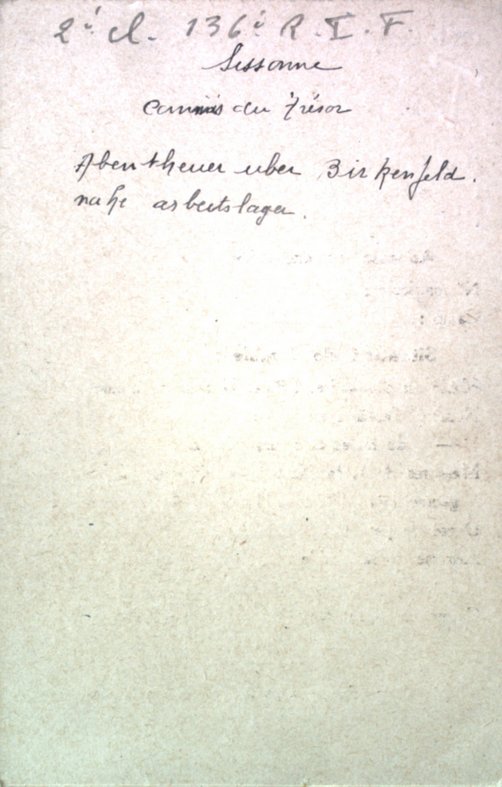 2è cl. 136è R.I.F.
Sissonne
Commis du trésor
Abentheuer uber Birkenfeld.
nahe arbeitslager.